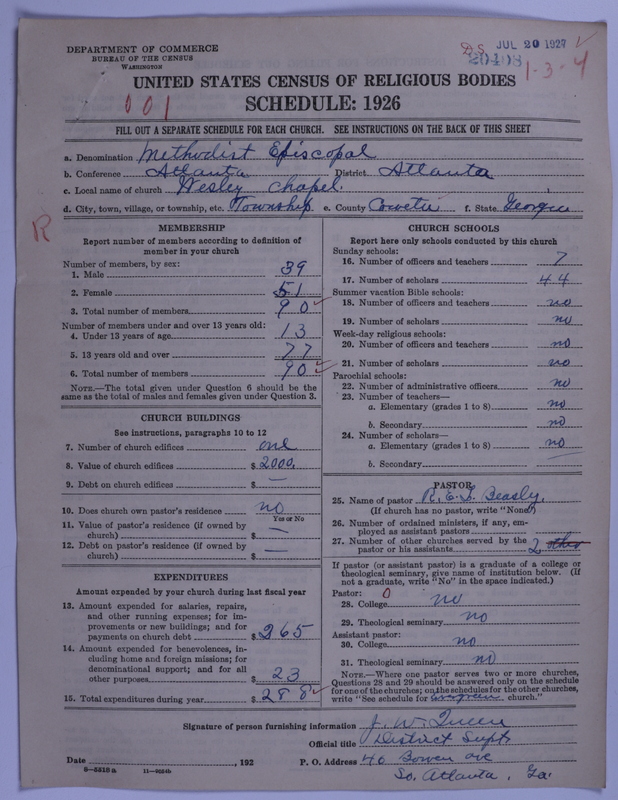 DEPARTMENT OF COMMERCE
BUREAU OF THE CENSUS
WASHINGTON
D.S. JUL 20 192
1-3-4
UNITED STATES CENSUS OF RELIGIOUS BODIES
001
SCHEDULE: 1926
FILL OUT A SEPARATE SCHEDULE FOR EACH CHURCH. SEE INSTRUCTIONS ON THE BACK OF THIS SHEET
a. Denomination Methodist Episcopal
b. Conference Atlanta District Atlanta
c. Local name of church Wesley Chapel
d. City, town, village, or township, etc. Township e. County Coweta f. State Georgia
R
MEMBERSHIP
Report number of members according to definition of
member in your church
Number of members, by sex:
1. Male 39
2. Female 51
3. Total number of members 90
Number of members under and over 13 years old:
4. Under 13 years of age 13
5. 13 years old and over 77
6. Total number of members 90
NOTE.—The total given under Question 6 should be the
same as the total of males and females given under Question 3.
CHURCH BUILDINGS
See instructions, paragraphs 10 to 12
7. Number of church edifices one
8. Value of church edifices $ 2000.
9. Debt on church edifices $ —
10. Does church own pastor's residence no
Yes or No
11. Value of pastor's residence (if owned by
church) $ —
12. Debt on pastor's residence (if owned by
church) $ —
EXPENDITURES
Amount expended by your church during last fiscal year
13. Amount expended for salaries, repairs,
and other running expenses; for im-
provements or new buildings; and for
payments on church debt $ 265
14. Amount expended for benevolences, in-
cluding home and foreign missions; for
denominational support; and for all
other purposes 23
15. Total expenditures during year $ 288
CHURCH SCHOOLS
Report here only schools conducted by this church
Sunday schools:
16. Number of officers and teachers 7
17. Number of scholars 44
Summer vacation Bible schools:
18. Number of officers and teachers no
19. Number of scholars no
Week-day religious schools:
20. Number of officers and teachers no
21. Number of scholars no
Parochial schools:
22. Number of administrative officers no
23. Number of teachers—
a. Elementary (grades 1 to 8) no
b. Secondary no
24. Number of scholars—
a. Elementary (grades 1 to 8) no
b. Secondary —
PASTOR
25. Name of pastor R. E. L. Beasly.
(If church has no pastor, write "None")
26. Number of ordained ministers, if any, em-
ployed as assistant pastors
27. Number of other churches served by the
pastor or his assistants 2 other
If pastor (or assistant pastor) is a graduate of a college or
theological seminary, give name of institution below. (If
not a graduate, write "No" in the space indicated.)
Pastor: 0
28. College no
29. Theological seminary no
Assistant pastor:
30. College no
31. Theological seminary no
NOTE.—Where one pastor serves two or more churches,
Questions 28 and 29 should be answered only on the schedule
for one of the churches; on the schedules for the other churches,
write "See schedule for church."
Signature of person furnishing information J. W. Queen
Official title District Supt
Date , 192 P. O. Address 40 Bowen ave
So. Atlanta, Ga.
6-5510 a 11-9024b